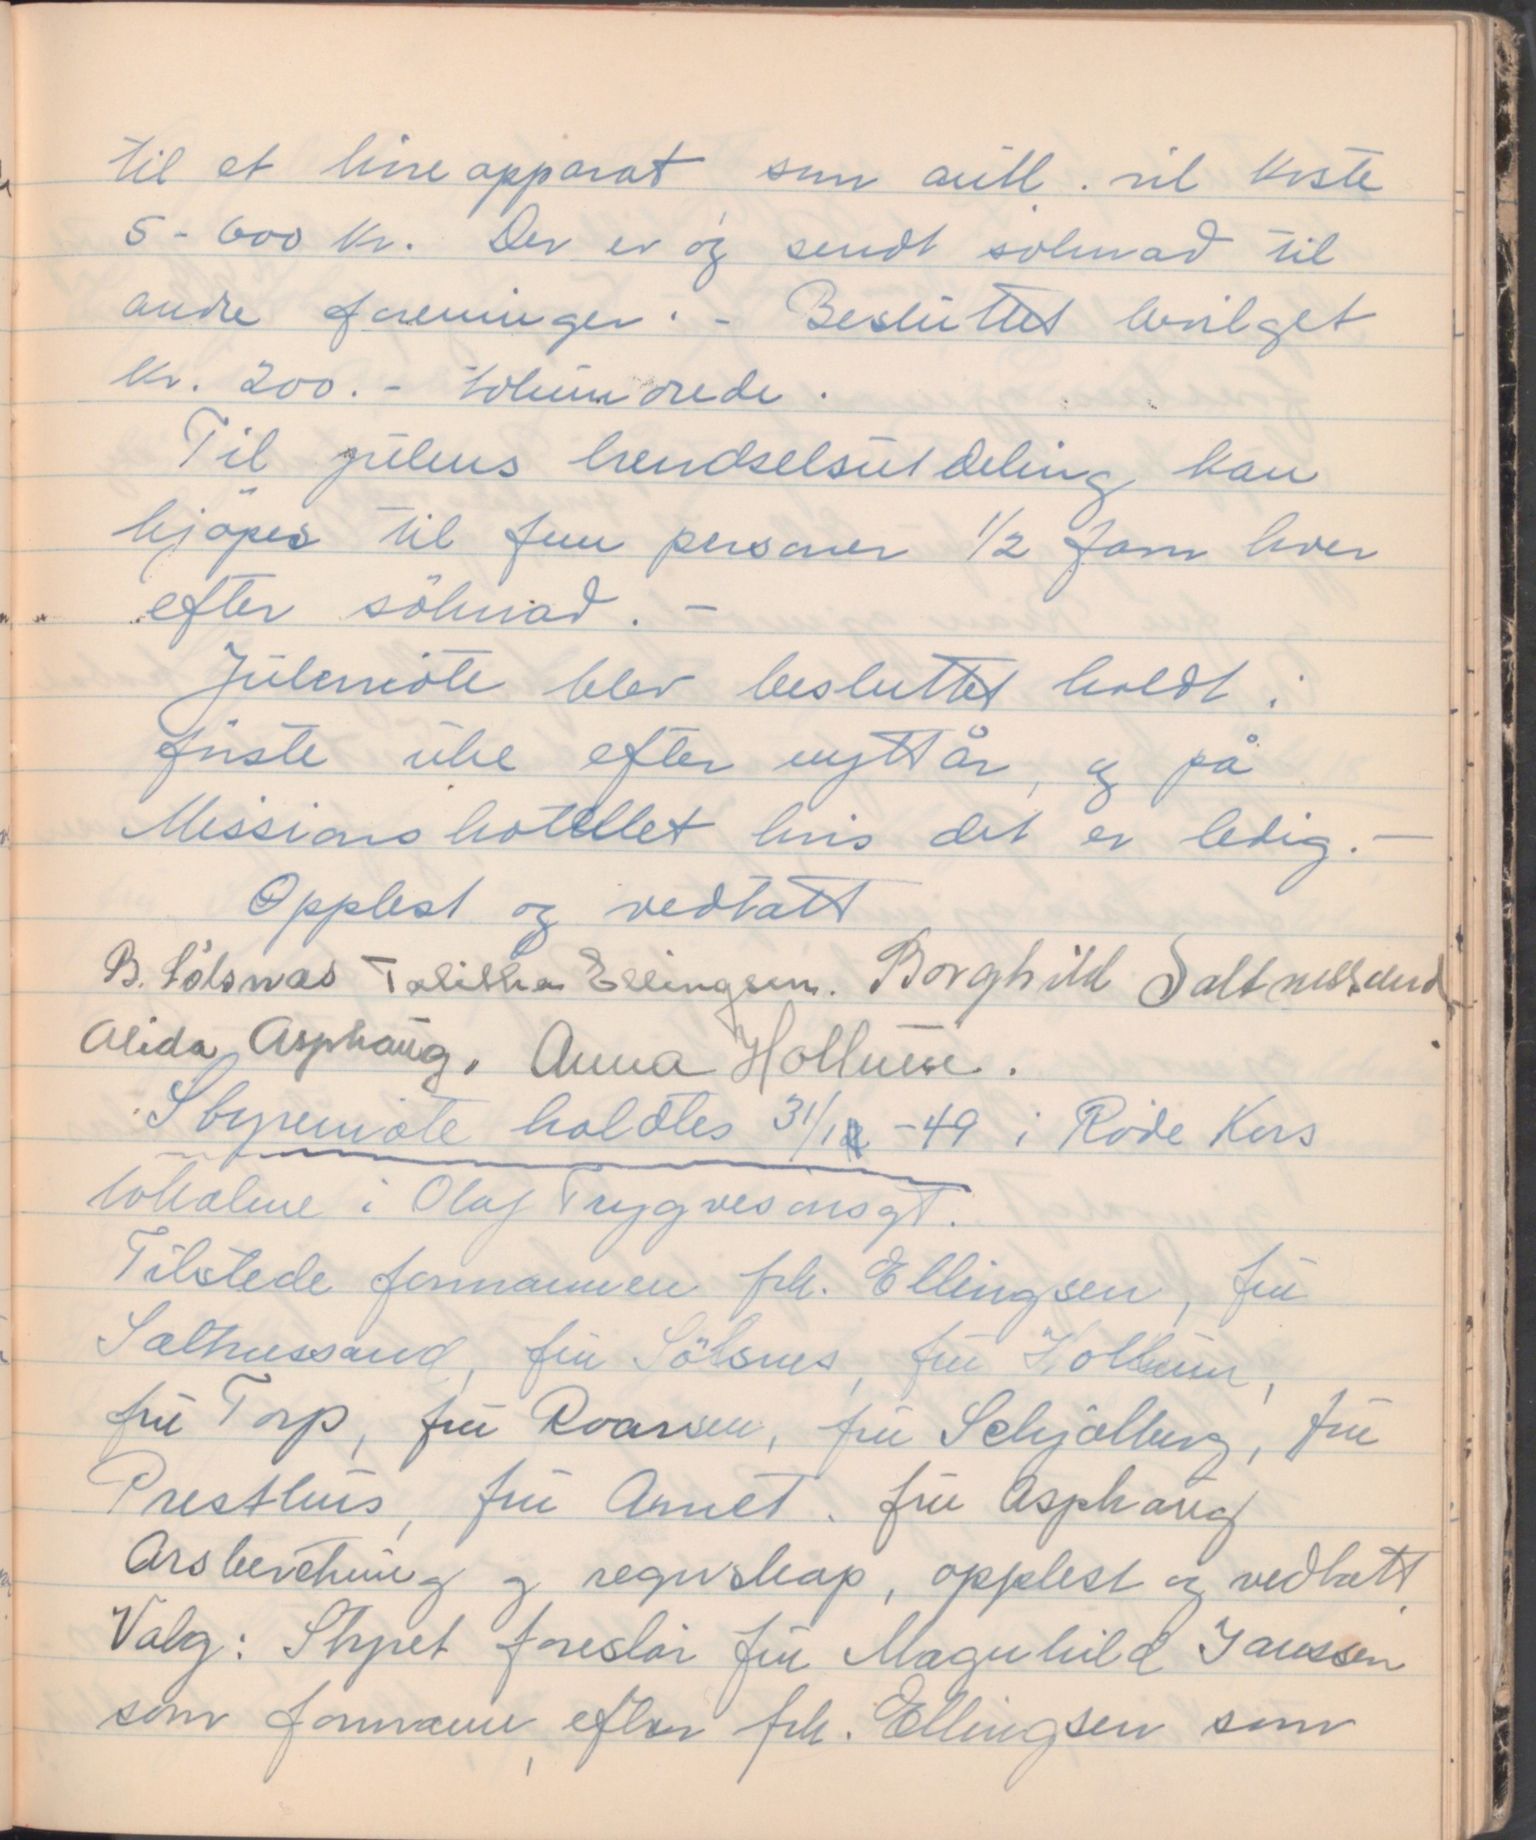 til et höreapparat som antl. vil koste
5-600 kr. Der er óg sendt söknad til
andre foreninger. - Besluttet bevilget
kr. 200.- tohundrede.
Til julens brendselsutdeling kan
kjöpes til fem personer 1/2 favn hver
efter söknad. -
Julemöte blev besluttet holdt i
förste uke efter nyttår, og på
Missionshotellet hvis det er ledig. -
Opplest og vedtatt
B. Sölsnæs Talitha Ellingsen. Borghild Saltnessand
Alida Asphaug. Anna Hollum.
Styremöte holdtes 31/1 -49 i Röde Kors
lokalene i Olaf Trygvesonsgt.
Tilstede formannen frk. Ellingsen, fru
Saltnessand, fru Sölsnes, fru Hollum,
fru Torp, fru Roarsen, fru Schjölberg, fru
Presthus, fru Arnet. fru Asphaug
Årsberetning og regnskap, opplest og vedtatt.
Valg: Styret foreslår fru Magnhild Janssen
som formann, efter frk. Ellingsen som